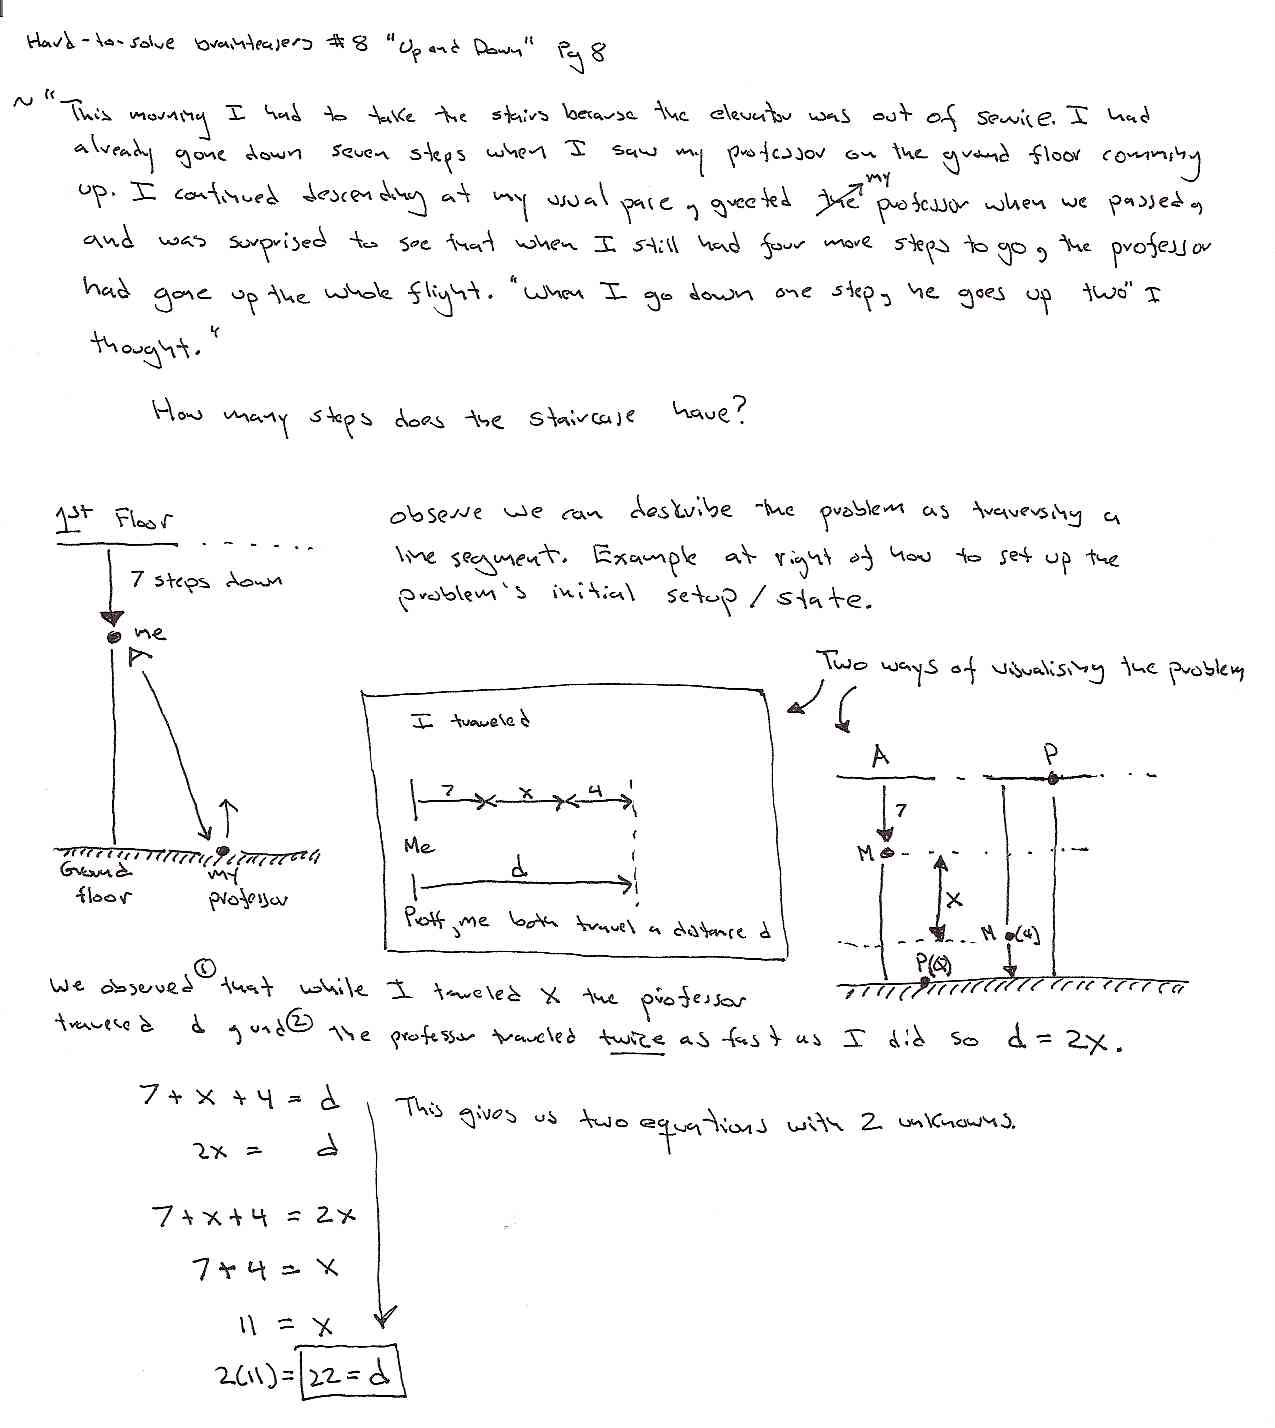 Hard-to-solve brainteasers #8 "Up and Down" Pg 8
~ "This morning I had to take the stairs because the elevator was out of service. I had
already gone down seven steps when I saw my professor on the ground floor comming
up. I continued descending at my usual pace, greeted the my professor when we passed,
and was surprised to see that when I still had four more steps to go, the professor
had gone up the whole flight. "When I go down one step, he goes up two" I
thought."
How many steps does the staircase have?
1st Floor
7 steps down
me
Ground floor
my professor
observe we can describe the problem as traversing a
line segment. Example at right of how to set up the
problem's initial setup / state.
Two ways of visualising the problem
I traveled
7 x 4
Me
d
Proff, me both travel a distance d
A P
7
M
x
M (4)
We observed ① that while I traveled x the professor
traveled d, and ② the professor traveled twice as fast as I did so d = 2x.
7 + x + 4 = d
2x = d
This gives us two equations with 2 unknowns.
7 + x + 4 = 2x
7 + 4 = x
11 = x
2(11) = 22 = d